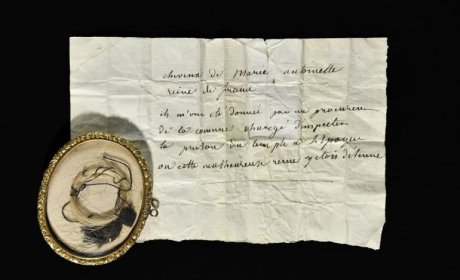 cheveux de Marie antoinette
reine de france
ils m'ont été donnés par un procureur
de la commune chargé d'inspecter
la prison du temple a l'époque
ou cette malheureuse reine y etois detenue